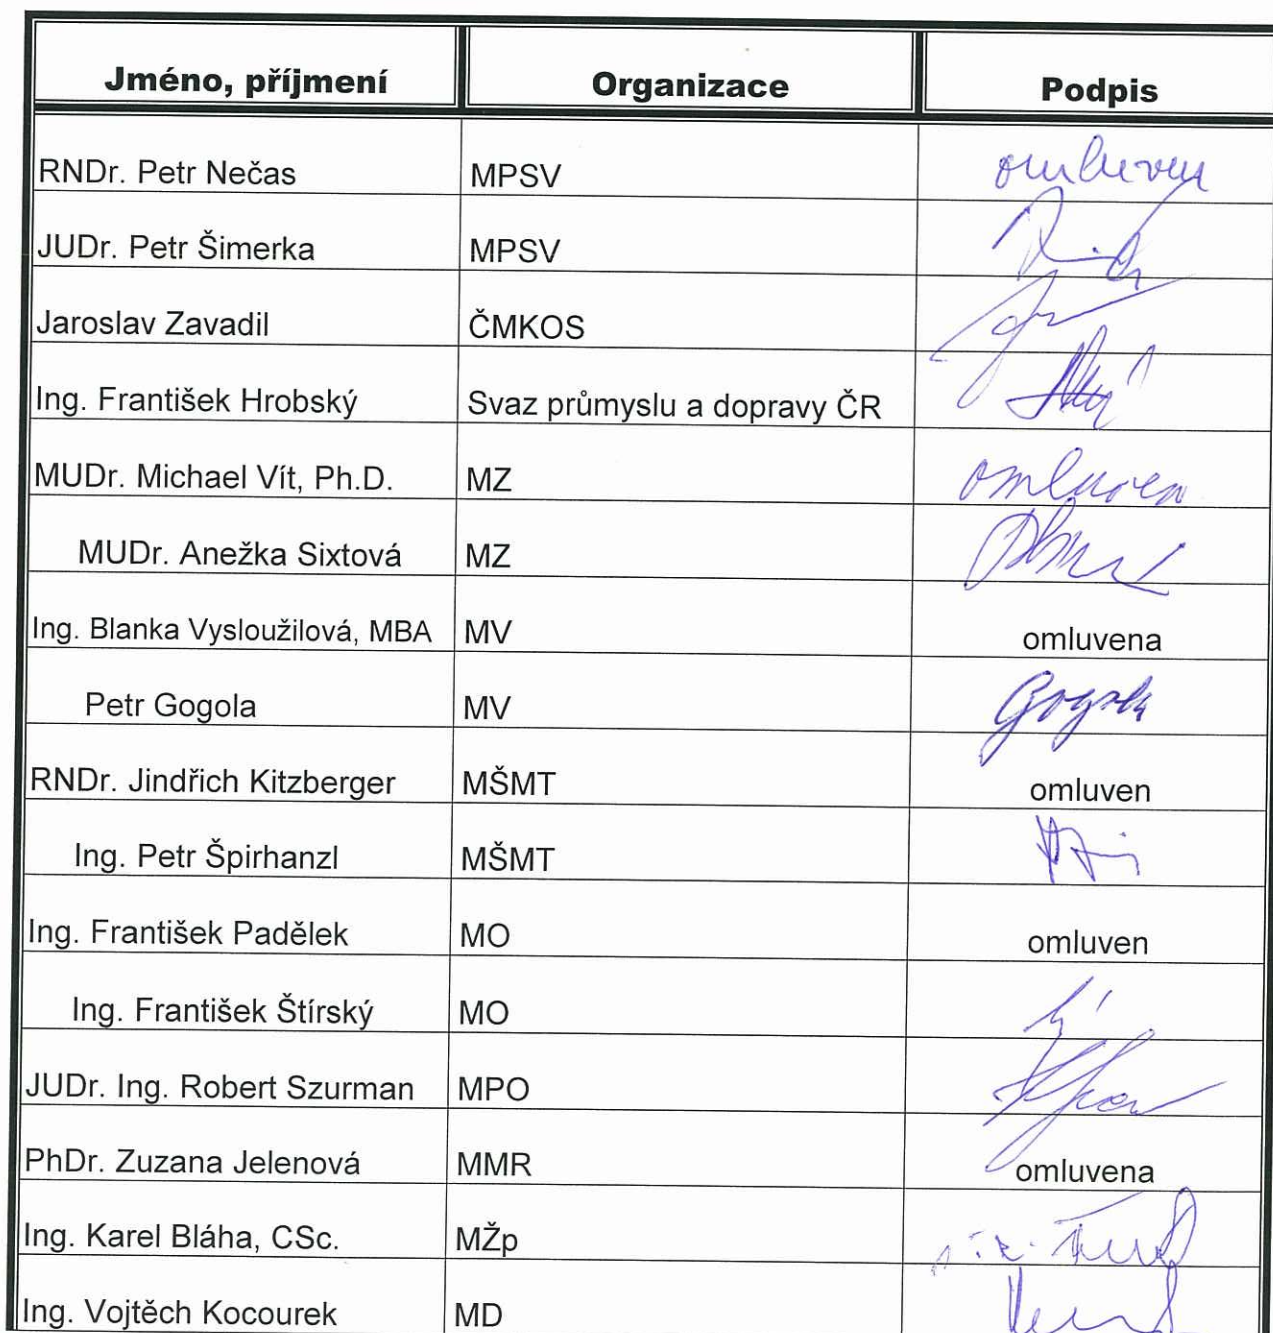 Jméno, příjmení Organizace Podpis
RNDr. Petr Nečas MPSV omluven
JUDr. Petr Šimerka MPSV
Jaroslav Zavadil ČMKOS
Ing. František Hrobský Svaz průmyslu a dopravy ČR
MUDr. Michael Vít, Ph.D. MZ omluven
MUDr. Anežka Sixtová MZ
Ing. Blanka Vysloužilová, MBA MV omluvena
Petr Gogola MV Gogola
RNDr. Jindřich Kitzberger MŠMT omluven
Ing. Petr Špirhanzl MŠMT
Ing. František Padělek MO omluven
Ing. František Štírský MO
JUDr. Ing. Robert Szurman MPO
PhDr. Zuzana Jelenová MMR omluvena
Ing. Karel Bláha, CSc. MŽp
Ing. Vojtěch Kocourek MD